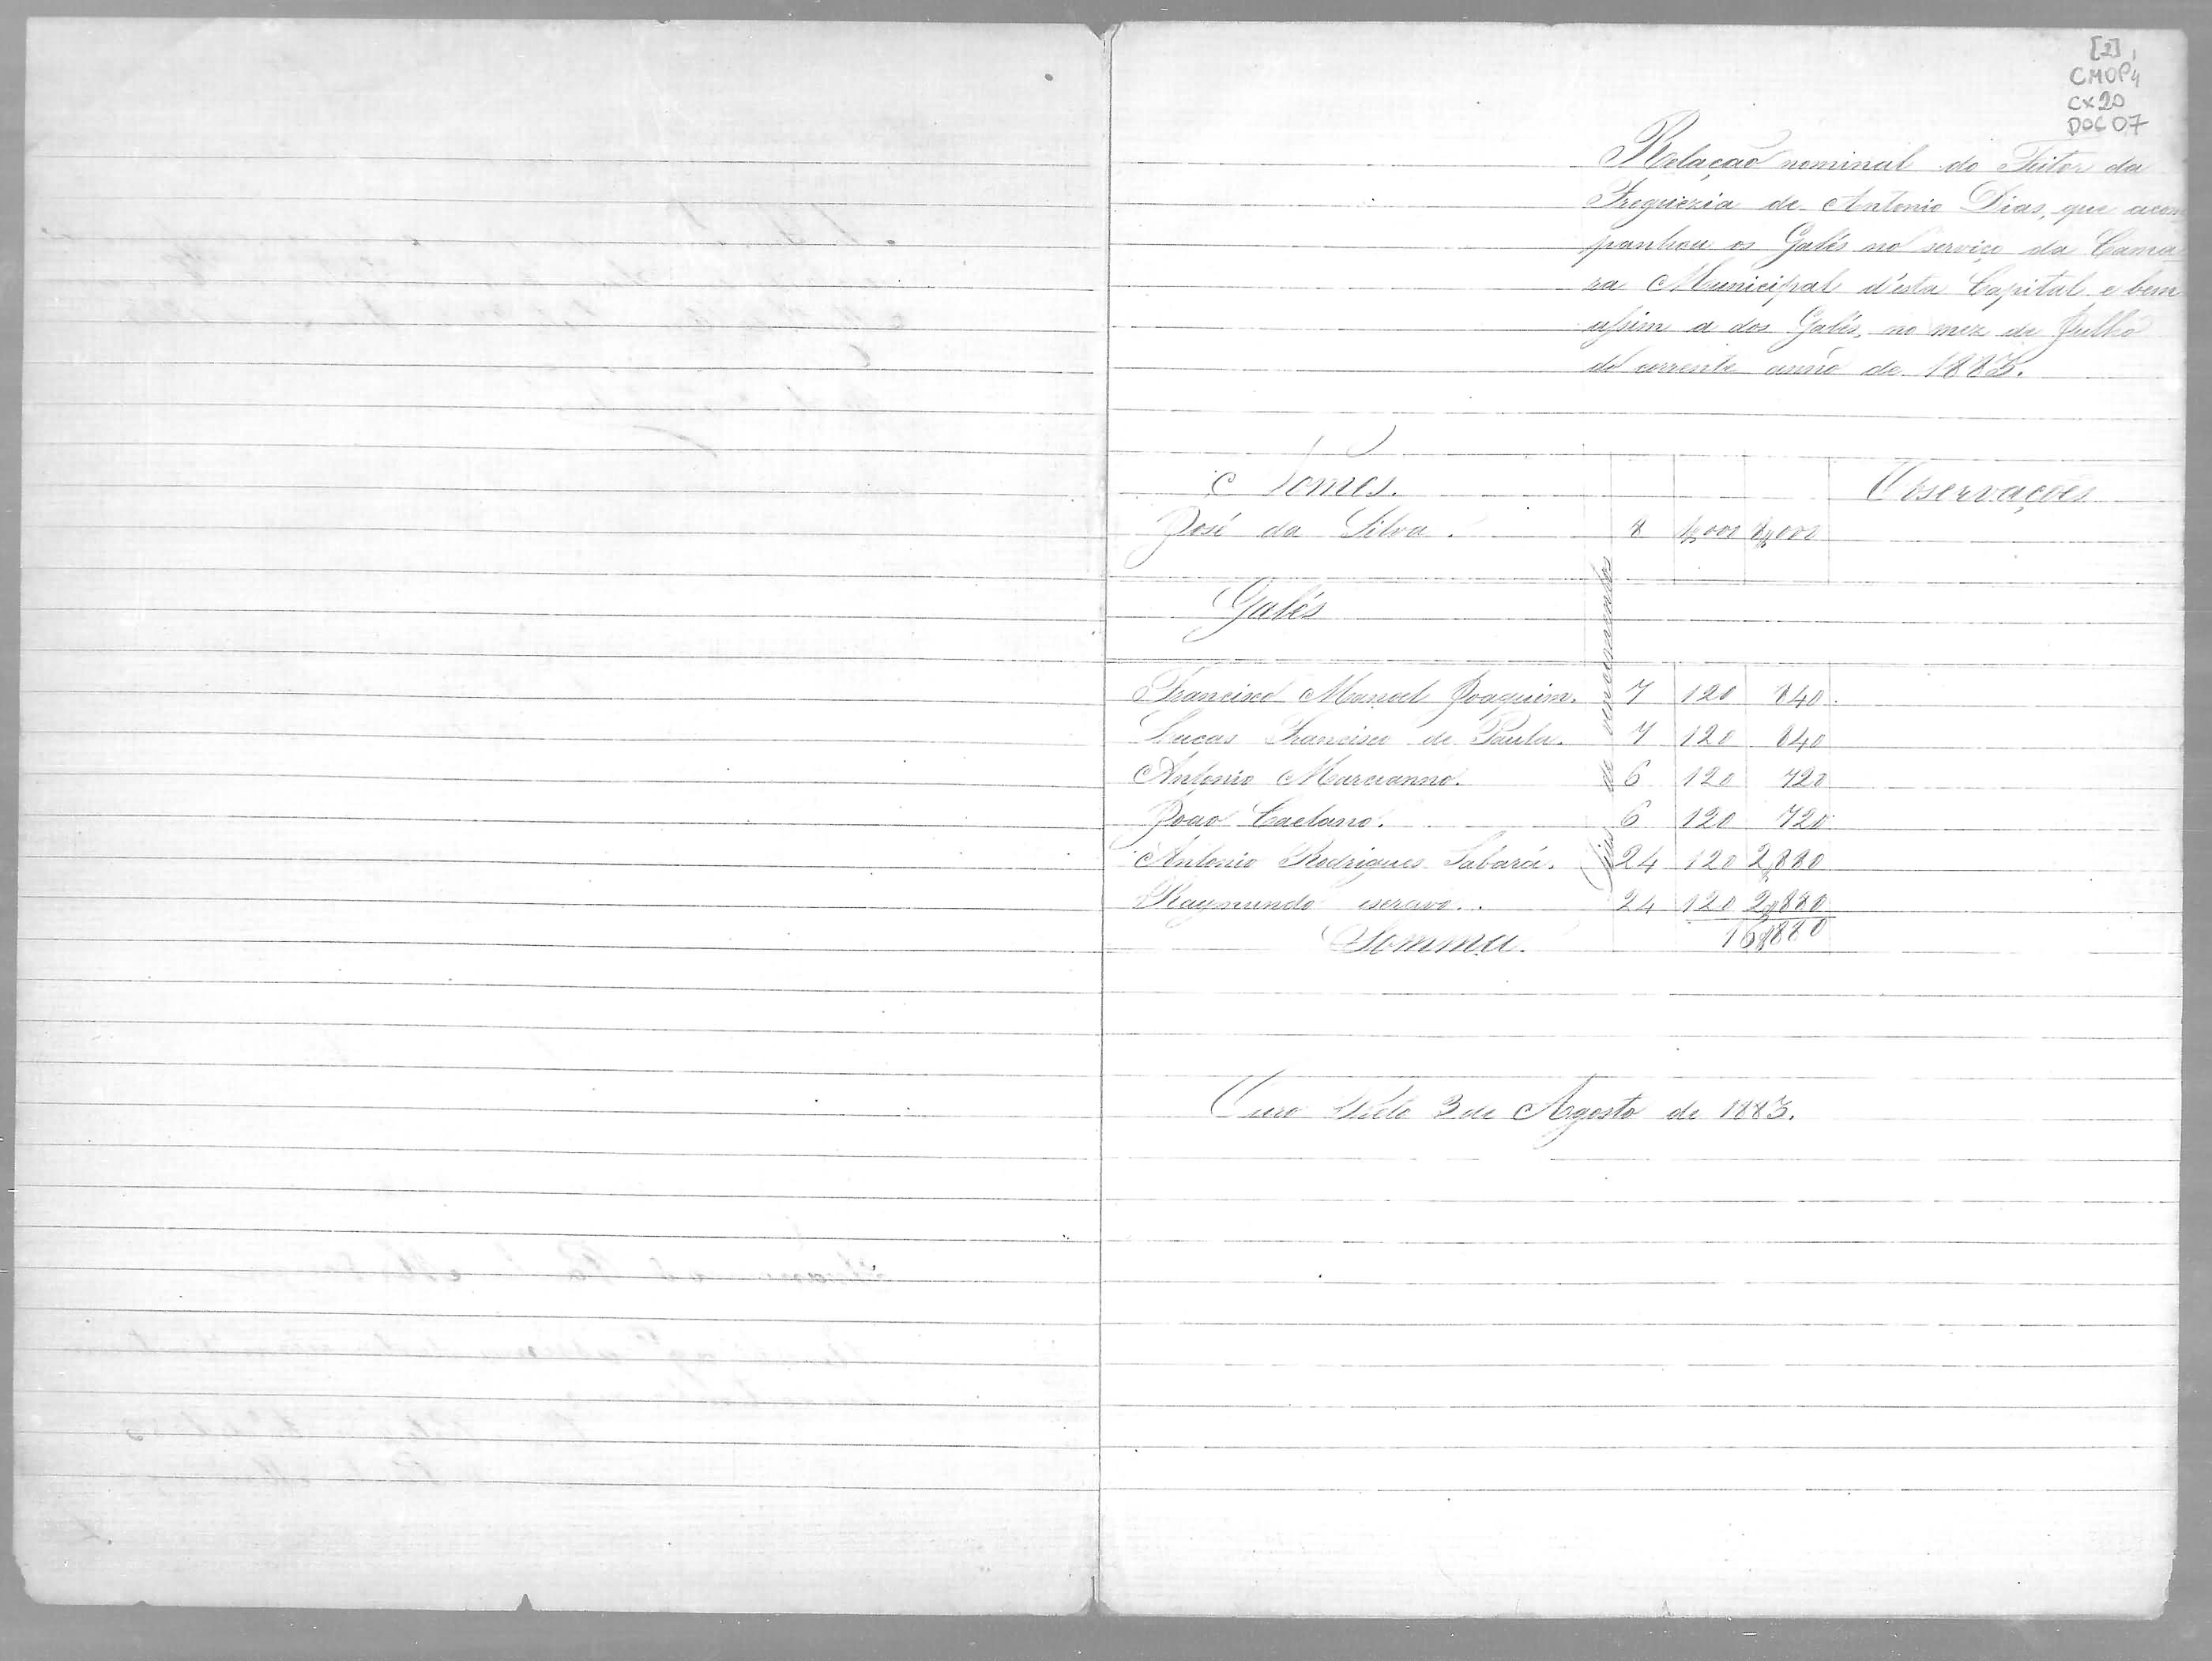 [2],
CMOP4
CX20
DOC 07
Relação nominal do Feitor da
Freguezia de Antonio Dias, que acom
panhou os Galés no serviço da Cama
ra Municipal d'esta Capital e bem
assim a dos Galés, no mez de Julho
do corrente anno de 1883.
Nomes. Observações
José da Silva. 8 1$000 8$000
Dias de vencimentos
Galés
Francisco Manoel Joaquim. 7 120 840.
Lucas Francisco de Paula. 7 120 840
Antonio Marcianno. 6 120 720
João Caetano. 6 120 720
Antonio Rodrigues Sabará. 24 120 2$880
Raymundo escravo. 24 120 2$880
Somma. 16$880
Ouro Preto 3 de Agosto de 1883.